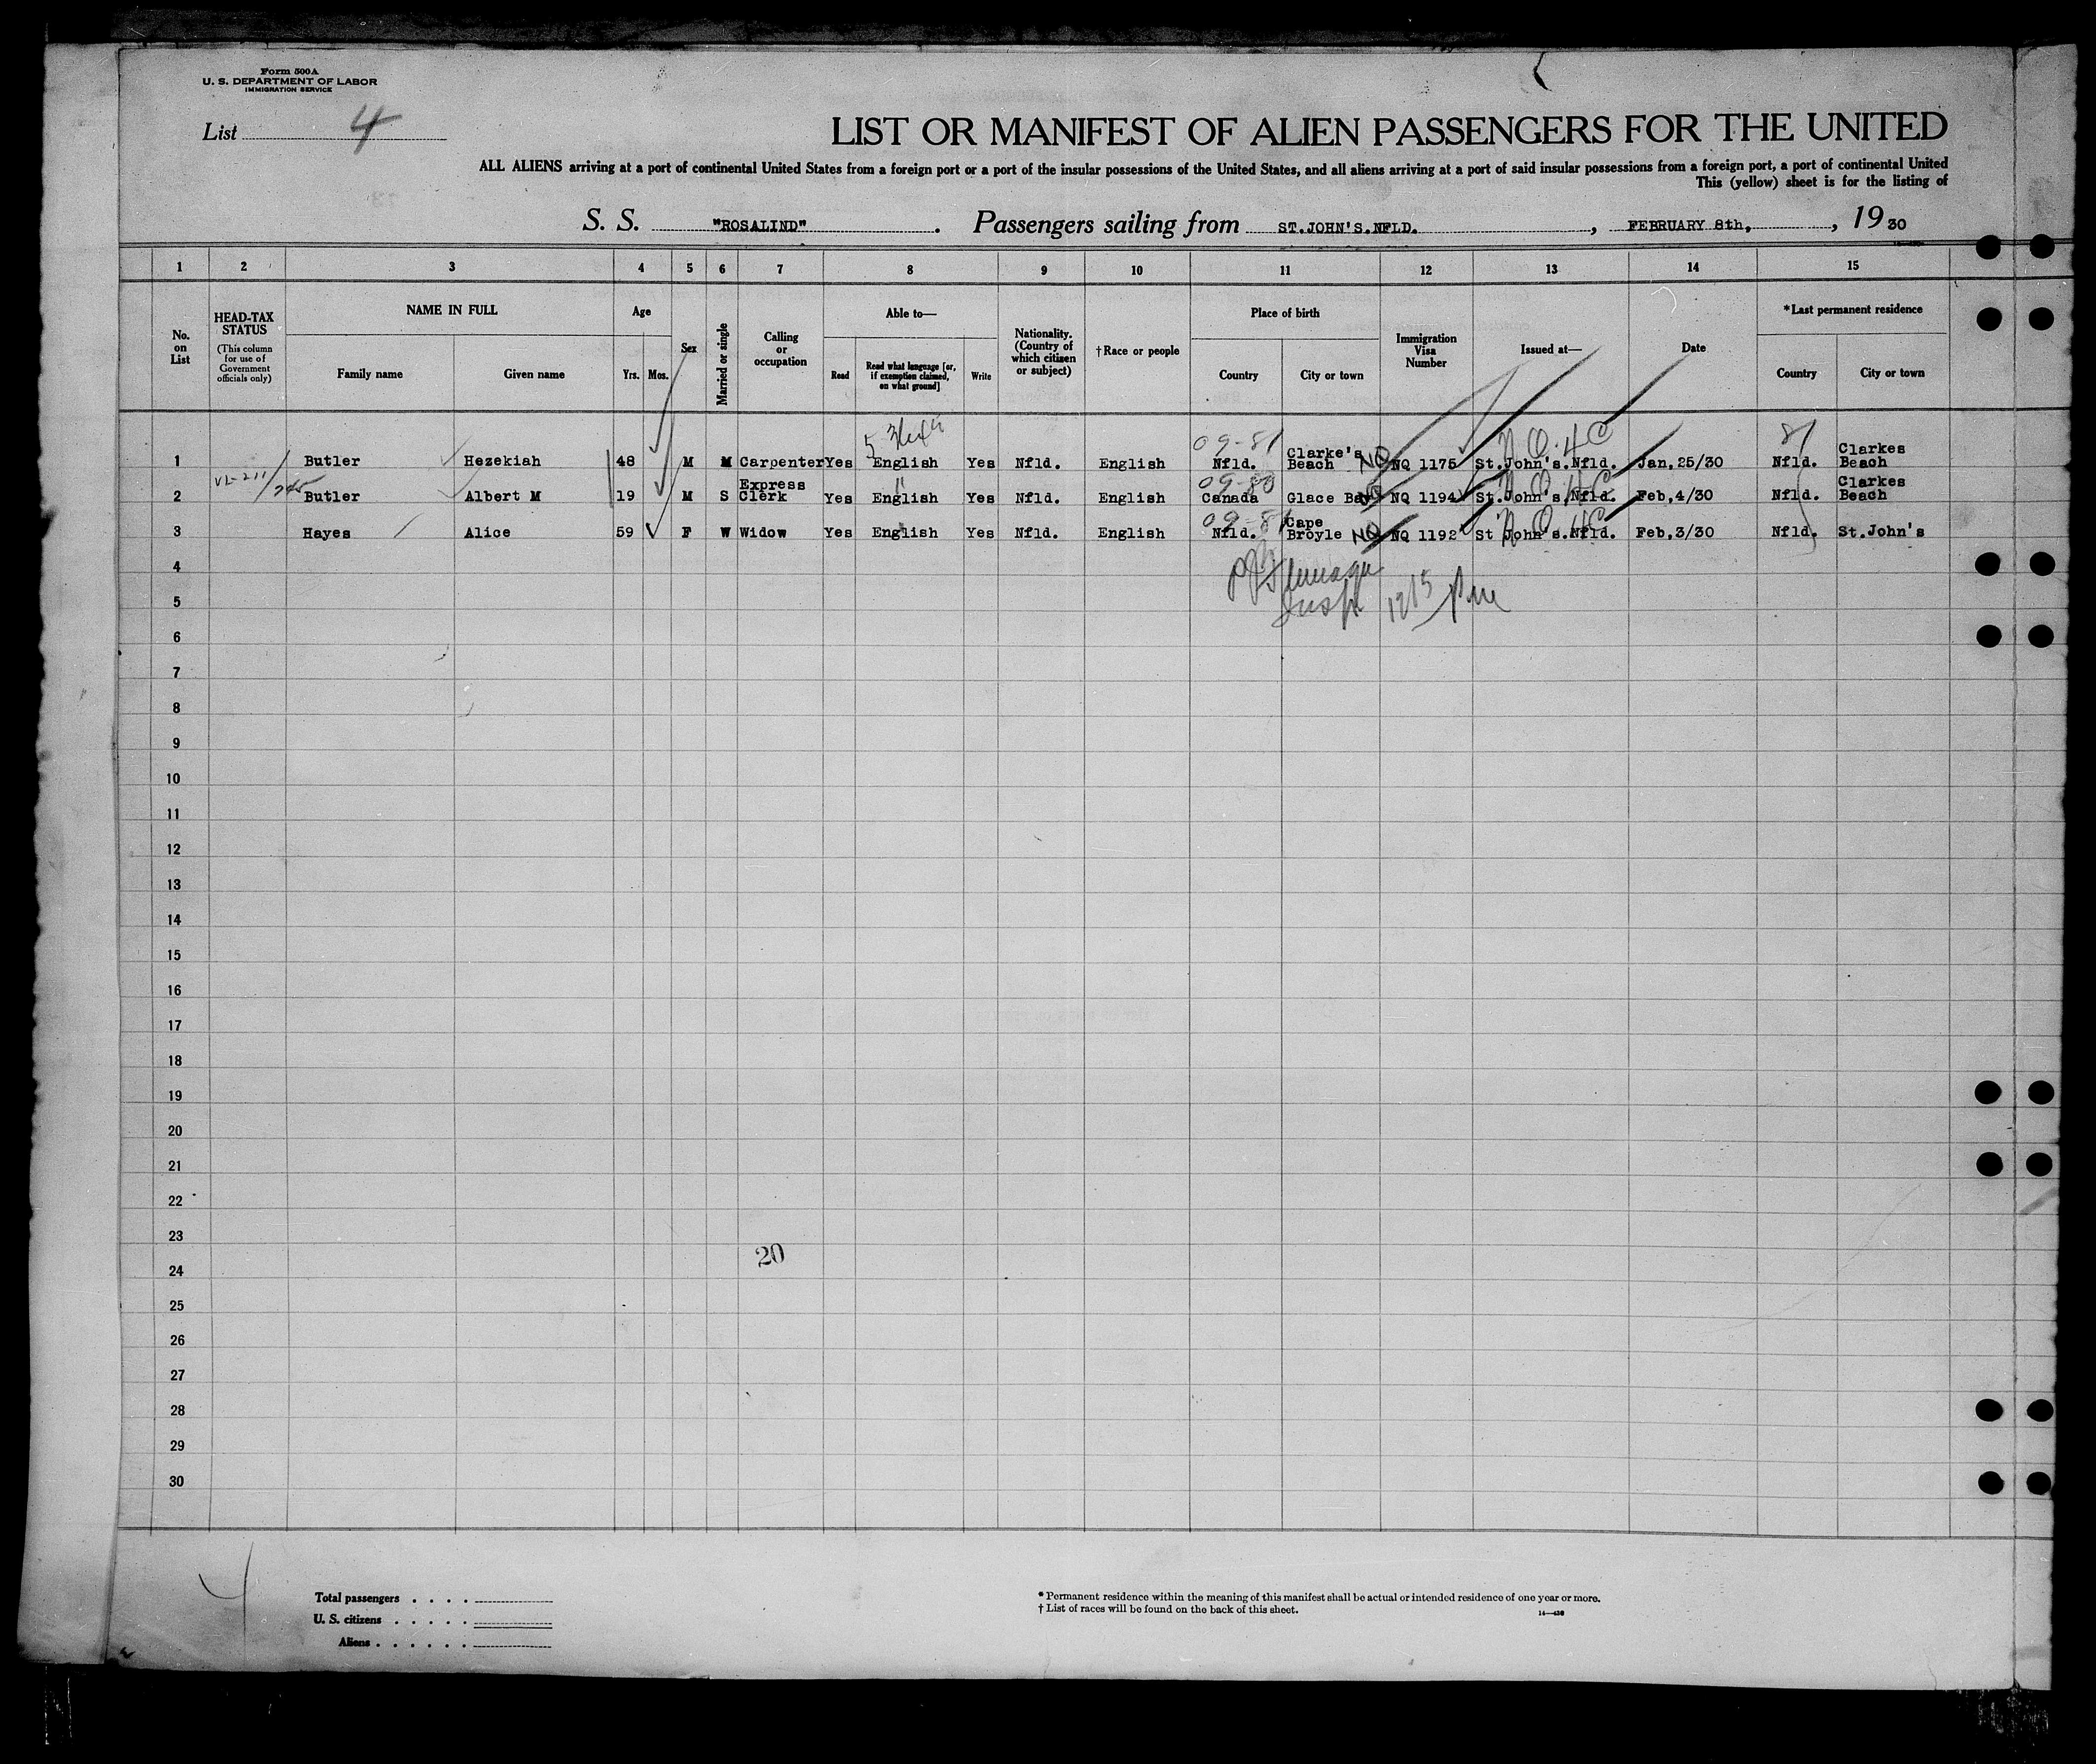 Form 500A
U. S. DEPARTMENT OF LABOR
IMMIGRATION SERVICE
List 4
LIST OR MANIFEST OF ALIEN PASSENGERS FOR THE UNITED
ALL ALIENS arriving at a port of continental United States from a foreign port or a port of the insular possessions of the United States, and all aliens arriving at a port of said insular possessions from a foreign port, a port of continental United
This (yellow) sheet is for the listing of
S. S. "ROSALIND" . Passengers sailing from ST.JOHN'S.NFLD. , FEBRUARY 8th, , 19 30
1 2 3 4 5 6 7 8 9 10 11 12 13 14 15
No. on List
HEAD-TAX STATUS
(This column for use of Government officials only)
NAME IN FULL
Family name Given name
Age
Yrs. Mos.
Sex
Married or single
Calling or occupation
Able to—
Read
Read what language [or, if exemption claimed, on what ground]
Write
Nationality. (Country of which citizen or subject)
† Race or people
Place of birth
Country City or town
Immigration Visa Number
Issued at—
Date
*Last permanent residence
Country City or town
09-81 81
1 Butler Hezekiah 48 M M Carpenter Yes English Yes Nfld. English Nfld. Clarke's Beach NQ NQ 1175 St.John's.Nfld. Jan,25/30 Nfld. Clarkes Beach
09-80
2 Butler Albert M 19 M S Express Clerk Yes English Yes Nfld. English Canada Glace Bay NQ 1194 St.John's.Nfld. Feb,4/30 Nfld. Clarkes Beach
09-81
3 Hayes Alice 59 F W Widow Yes English Yes Nfld. English Nfld. Cape Broyle NQ NQ 1192 St John's.Nfld. Feb,3/30 Nfld. St.John's
4
Insp 1215 pm
5
6
7
8
9
10
11
12
13
14
15
16
17
18
19
20
21
22
23
20
24
25
26
27
28
29
30
Total passengers . . . .
U. S. citizens . . . . .
Aliens . . . . . .
* Permanent residence within the meaning of this manifest shall be actual or intended residence of one year or more.
† List of races will be found on the back of this sheet.
14—430